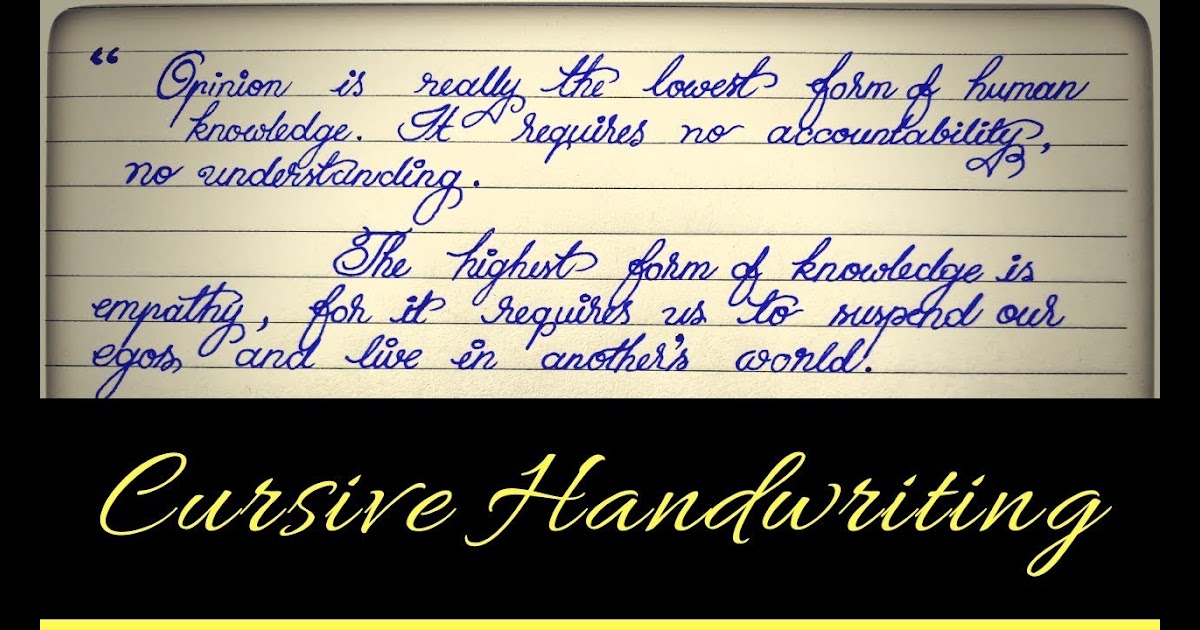 “ Opinion is really the lowest form of human
knowledge. It requires no accountability,
no understanding.
The highest form of knowledge is
empathy, for it requires us to suspend our
egos and live in another's world.
Cursive Handwriting